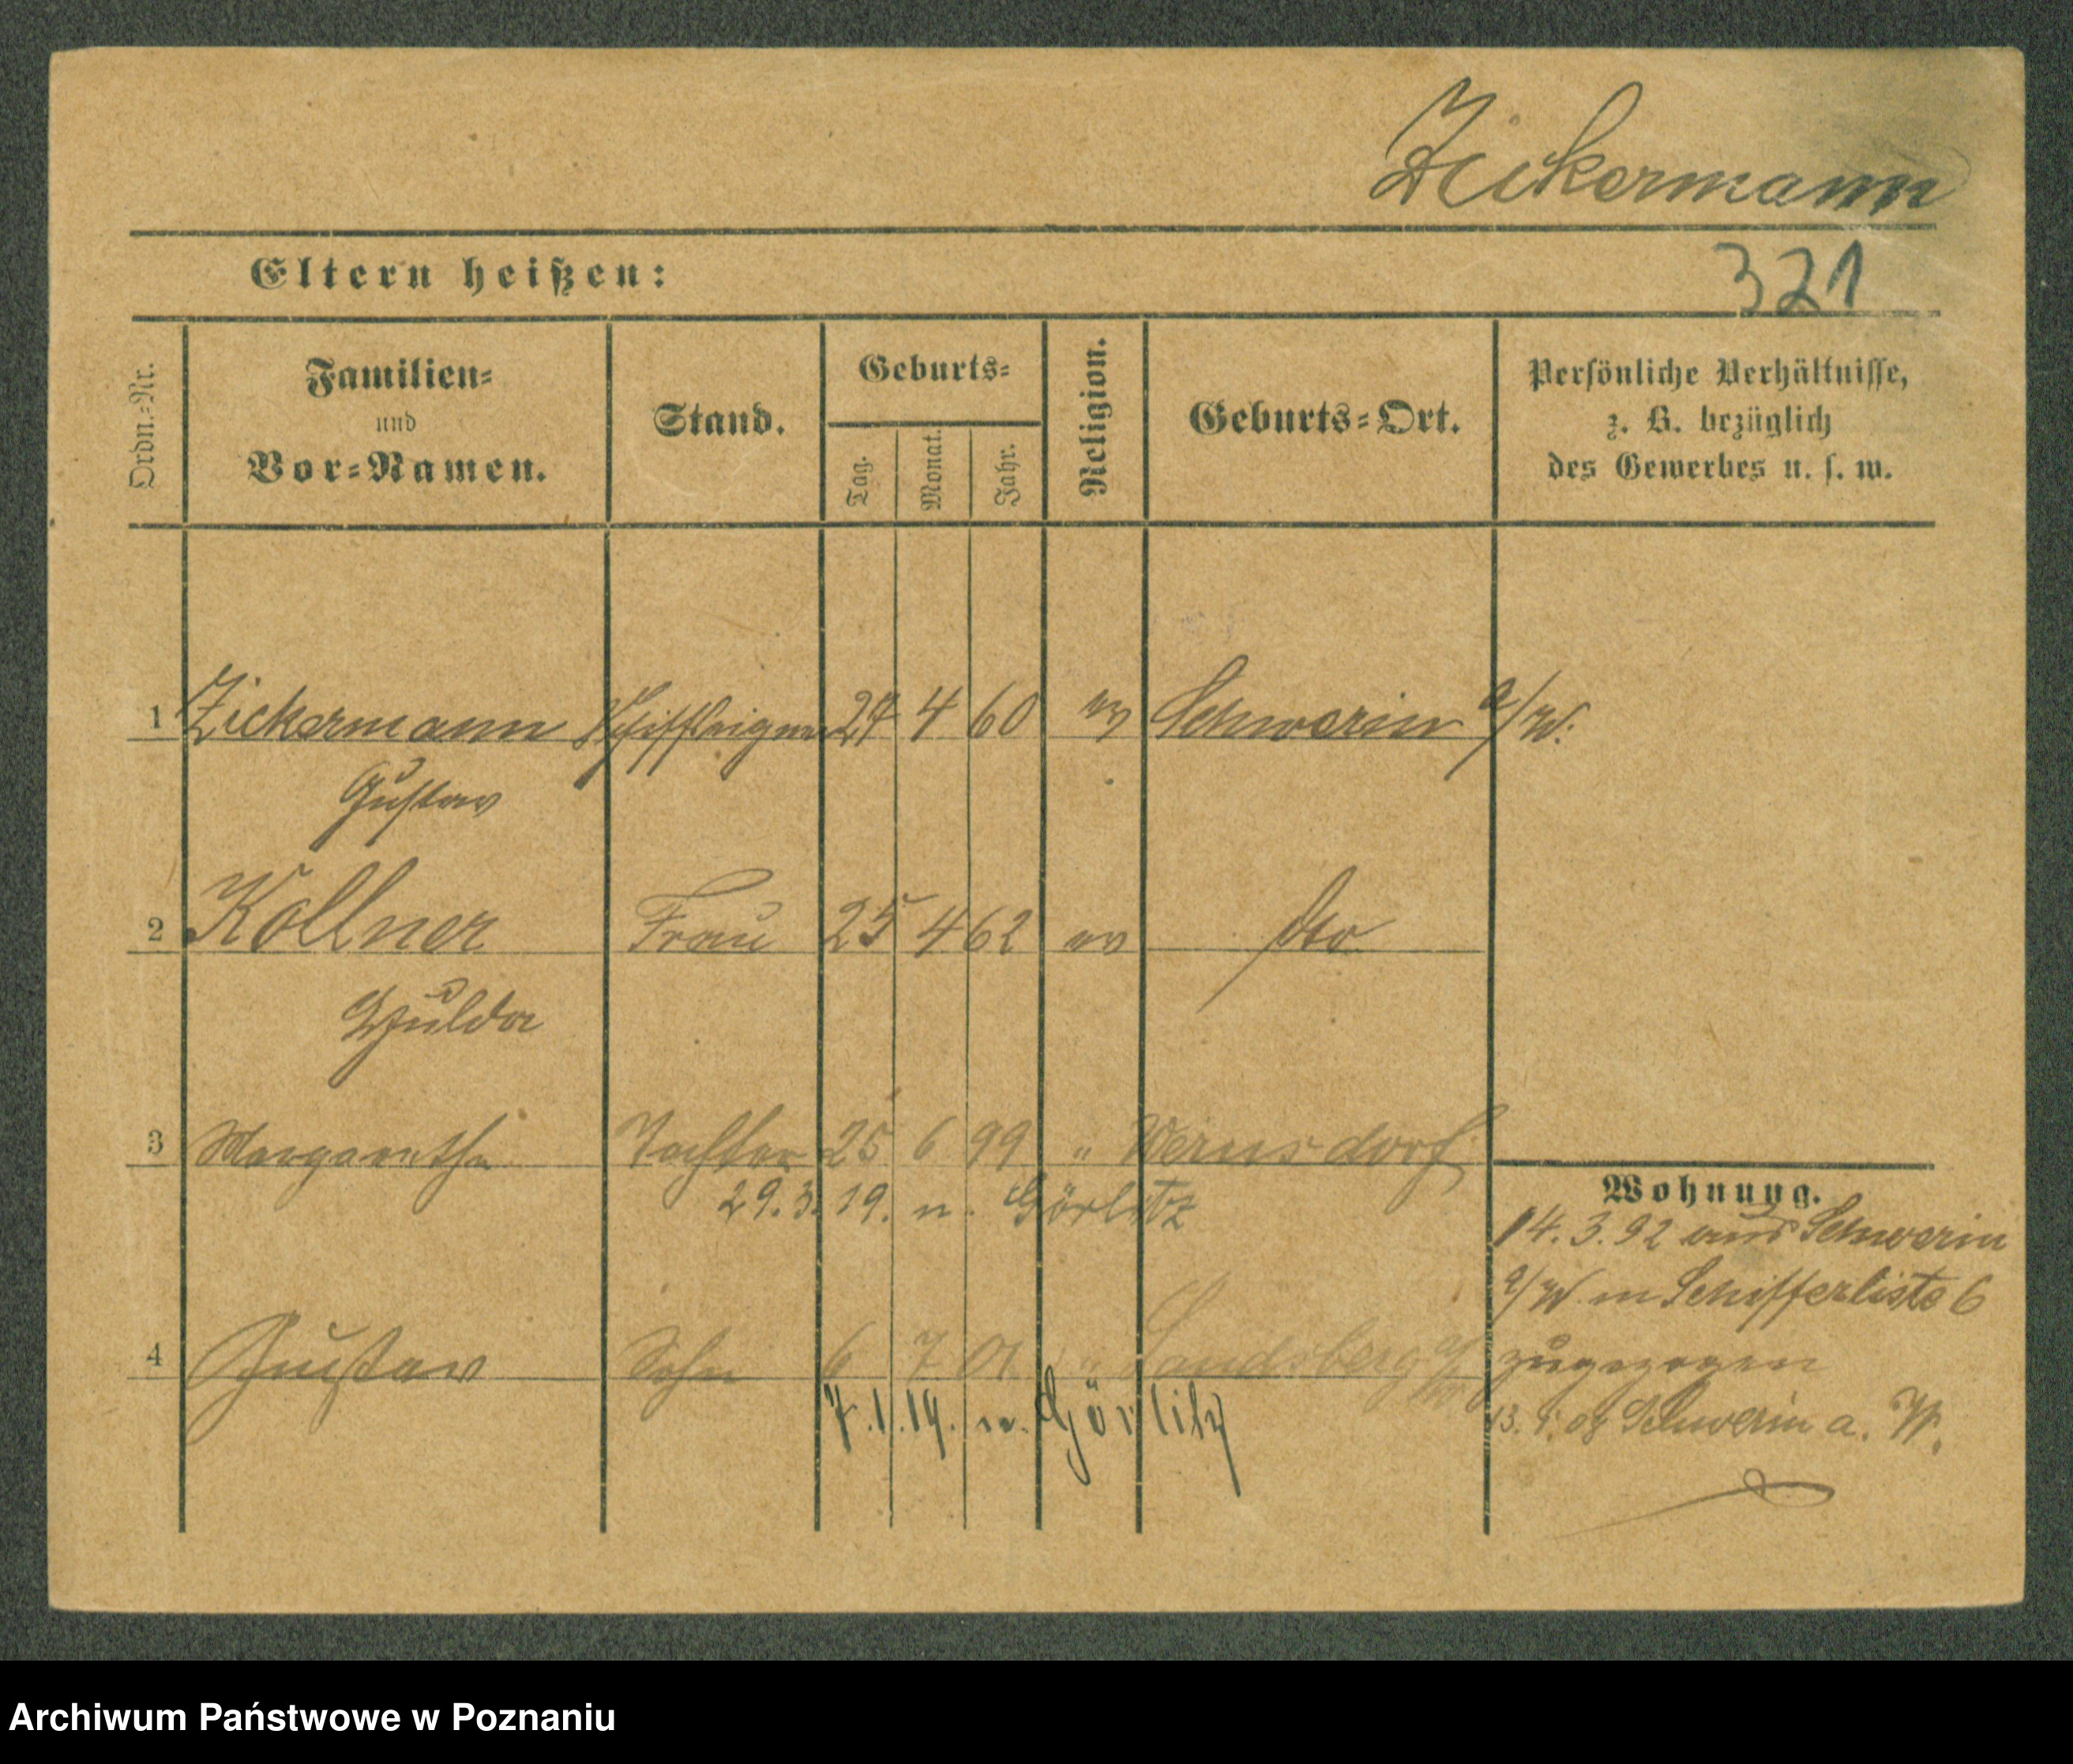 Zickermann
321
Eltern heißen:
Ordn.-Nr.
Familien-
und
Vor-Namen.
Stand.
Geburts-
Tag.
Monat.
Jahr.
Religion.
Geburts-Ort.
Persönliche Verhältnisse,
z. B. bezüglich
des Gewerbes u. s. w.
1 Zickermann Schiffseigner 27 4 60 ev Schwerin a/W.
Gustav
2 Kollner Frau 25 4 62 ev dto
Hulda
3 Margarethe Tochter 25 6 99 " Wernsdorf
29.3.19. n. Görlitz
4 Gustav Sohn 6 7 01 " Landsberg a/W
7.1.19. n. Görlitz
Wohnung.
14.3.92 aus Schwerin
a/W. in Schifferliste 6
zugezogen
13. 08 Schwerin a. W.
Archiwum Państwowe w Poznaniu